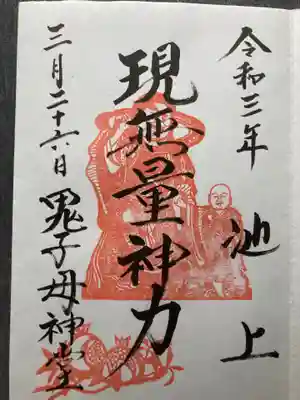 令和三年
逊上
現無量神力
三月二十六日
鬼子母神堂